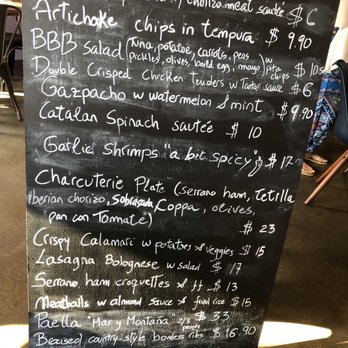 chorizo meal sautée $ 6
Artichoke chips in tempura $ 9.90
BBB salad (tuna, potatoe, carrots, peas
pickles, olives, boiled egg, mayo) w pita chips $ 10
Double Crisped Chicken tenders w Tartar sauce $ 6
Gazpacho w watermelon & mint $ 9.90
Catalan Spinach sautée $ 10
Garlic Shrimps "a bit spicy" $ 17
Charcuterie Plate (Serrano ham, Tetilla
Iberian chorizo, Sobrasada, Coppa, olives,
pan con Tomate) $ 23
Crispy Calamari w potatoes & veggies $ 15
Lasagna Bolognese w salad $ 17
Serrano ham croquettes $ 13
Meatballs w almond sauce & fried rice $ 15
Paella "Mar y Montaña $ 33
Braised country-style boneless ribs $ 16.90